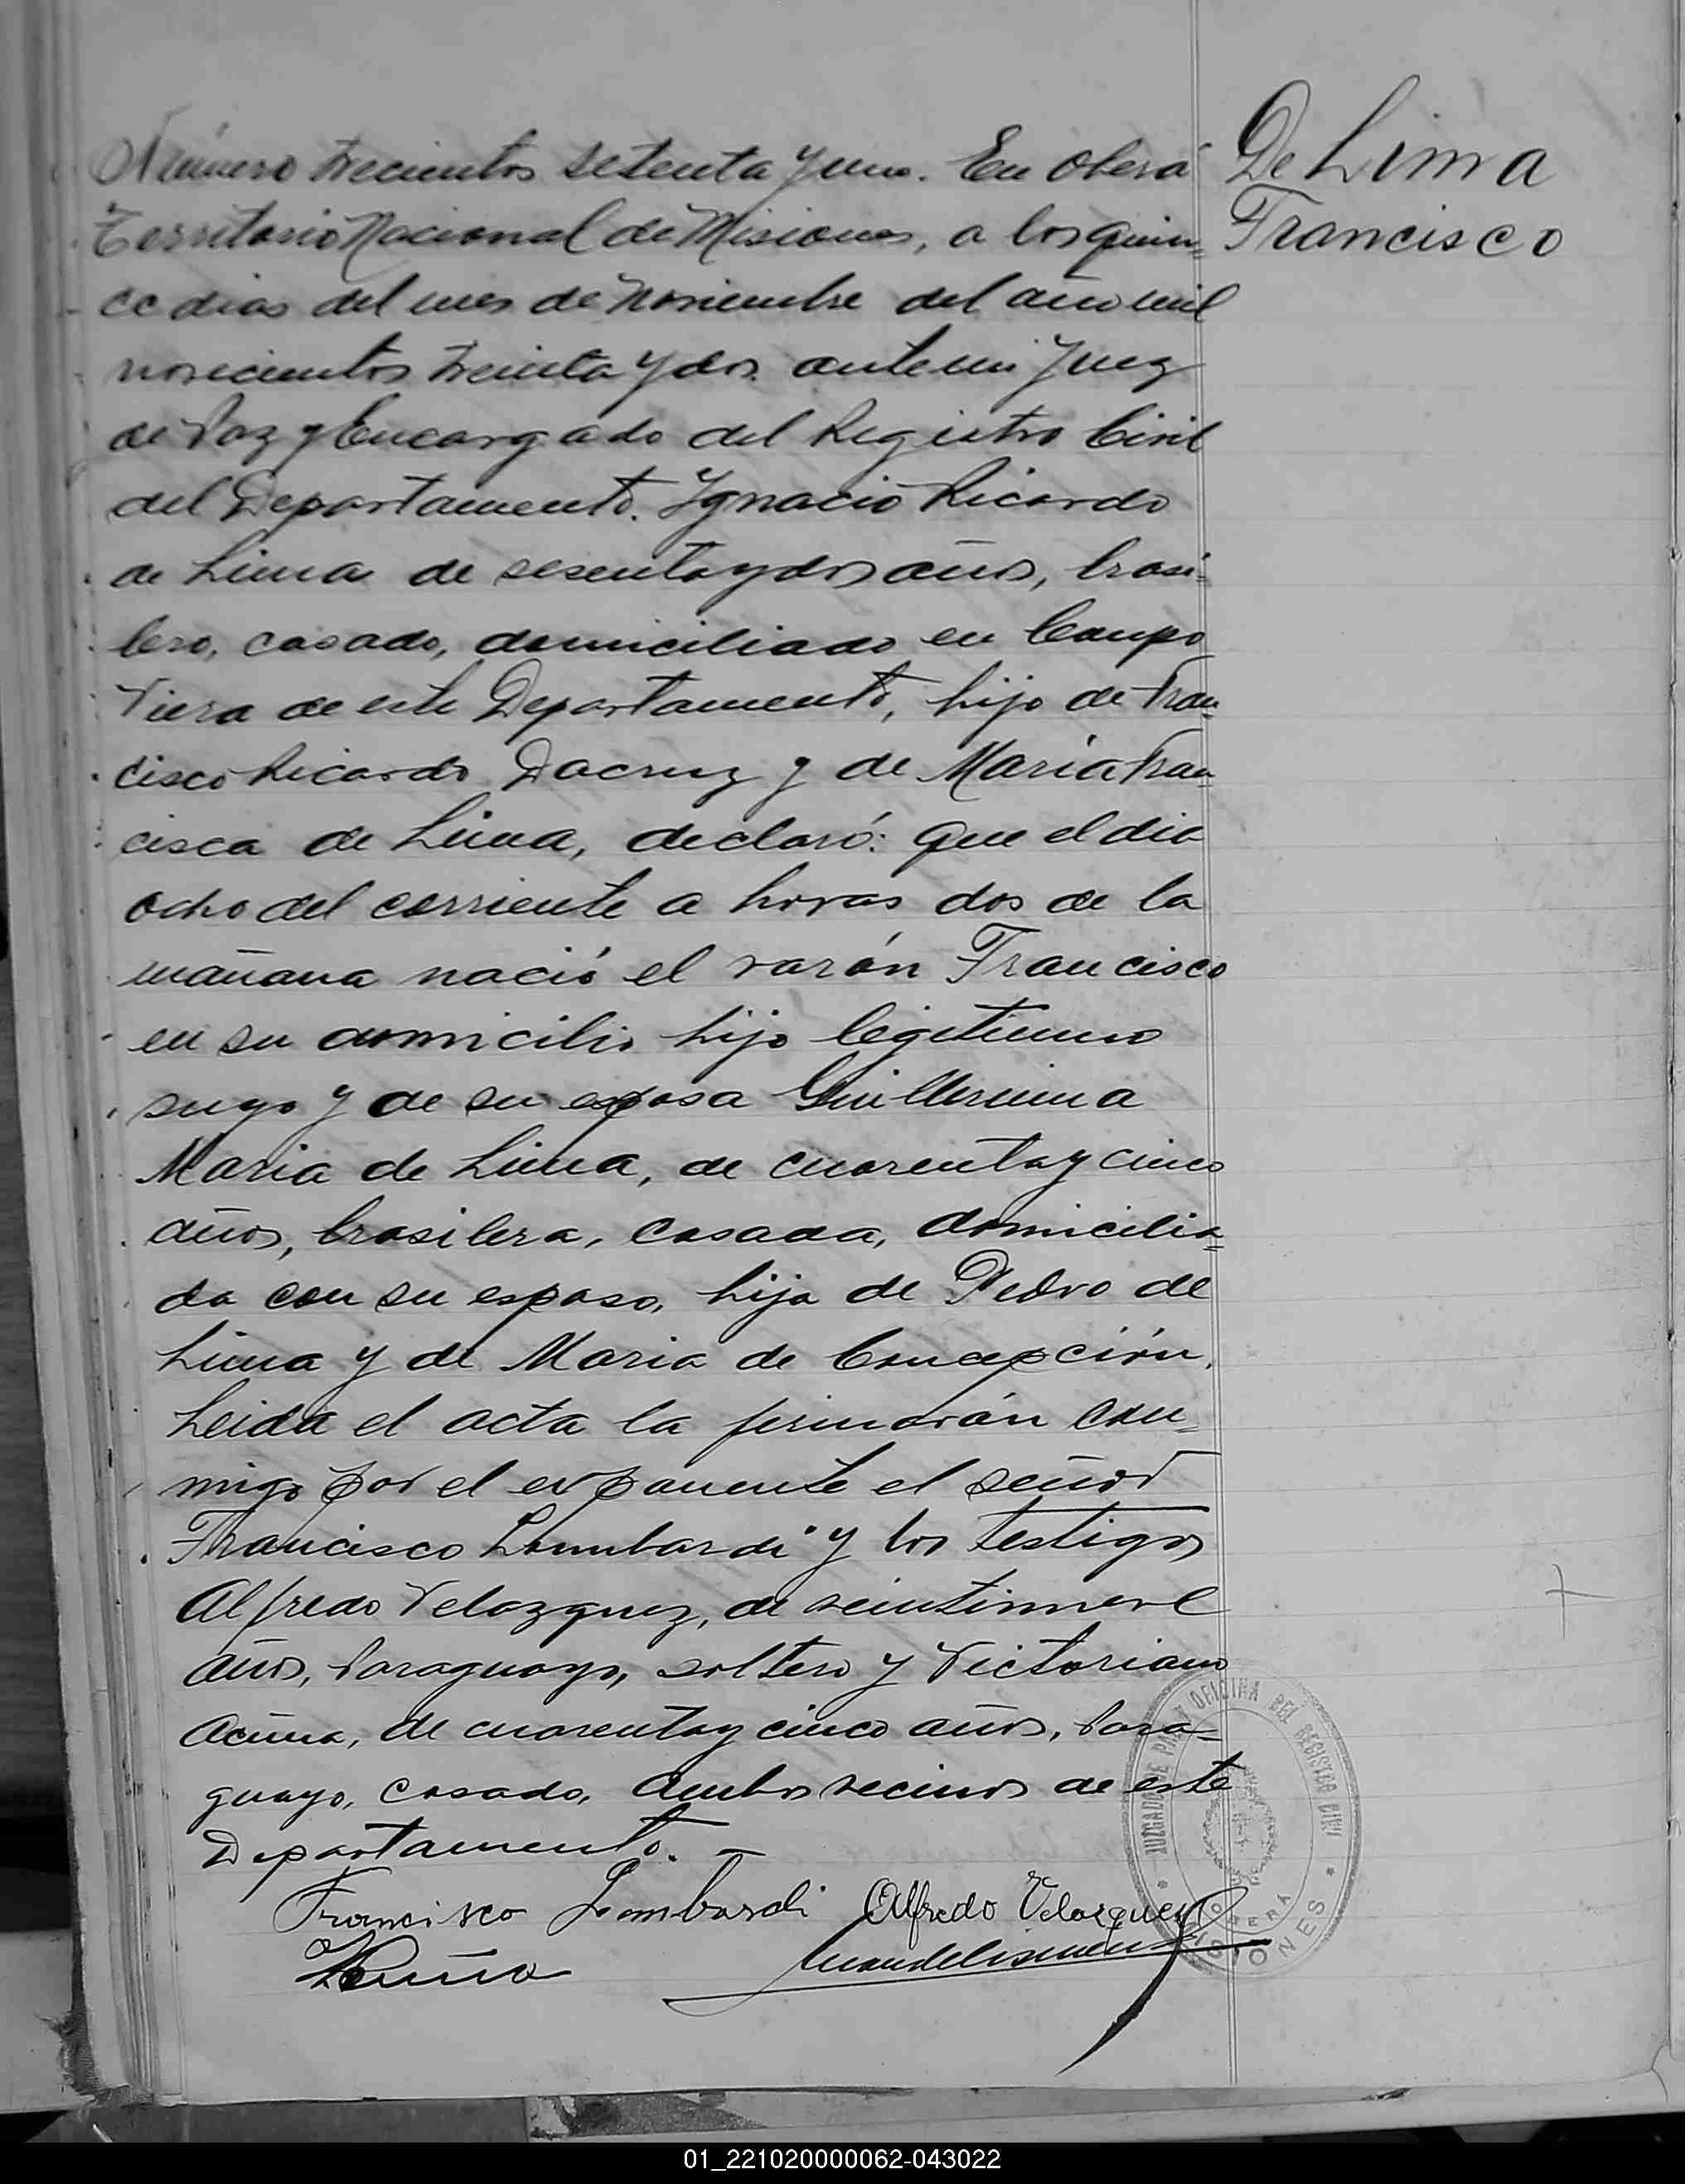 Número trecientos setenta y uno. En Oberá
Territorio Nacional de Misiones, a los quin=
ce dias del mes de Noviembre del año mil
novecientos treinta y dos. ante mi Juez
de Paz y Encargado del Registro Civil
del Departamento. Ignacio Ricardo
de Lima de sesenta y dos años, brasi=
lero, casado, domiciliado en Campo
Viera de este Departamento, hijo de Fran=
cisco Ricardo Dacruz y de Maria Fran=
cisca de Lima, declaró: que el dia
ocho del corriente a horas dos de la
mañana nació el varón Francisco
en su domicilio hijo legitimo
suyo y de su esposa Guillermina
Maria de Lima, de cuarenta y cinco
años, brasilera, casada, domicilia=
da con su esposo, hija de Pedro de
Lima y de Maria de Concepción.
Leida el acta la firmarán con=
migo por el exponente el señor
Francisco Lombardi y los testigos
Alfredo Velazquez, de veintinueve
años, Paraguayo, soltero y Victoriano
Acuña, de cuarenta y cinco años, Para=
guayo, casado, ambos vecinos de este
Departamento. —
De Lima
Francisco
Francisco Lombardi
Alfredo Velazquez
VAcuña
JUZGADO DE PAZ Y OFICINA DEL REGISTRO CIVIL
OBERÁ
MISIONES
01_221020000062-043022